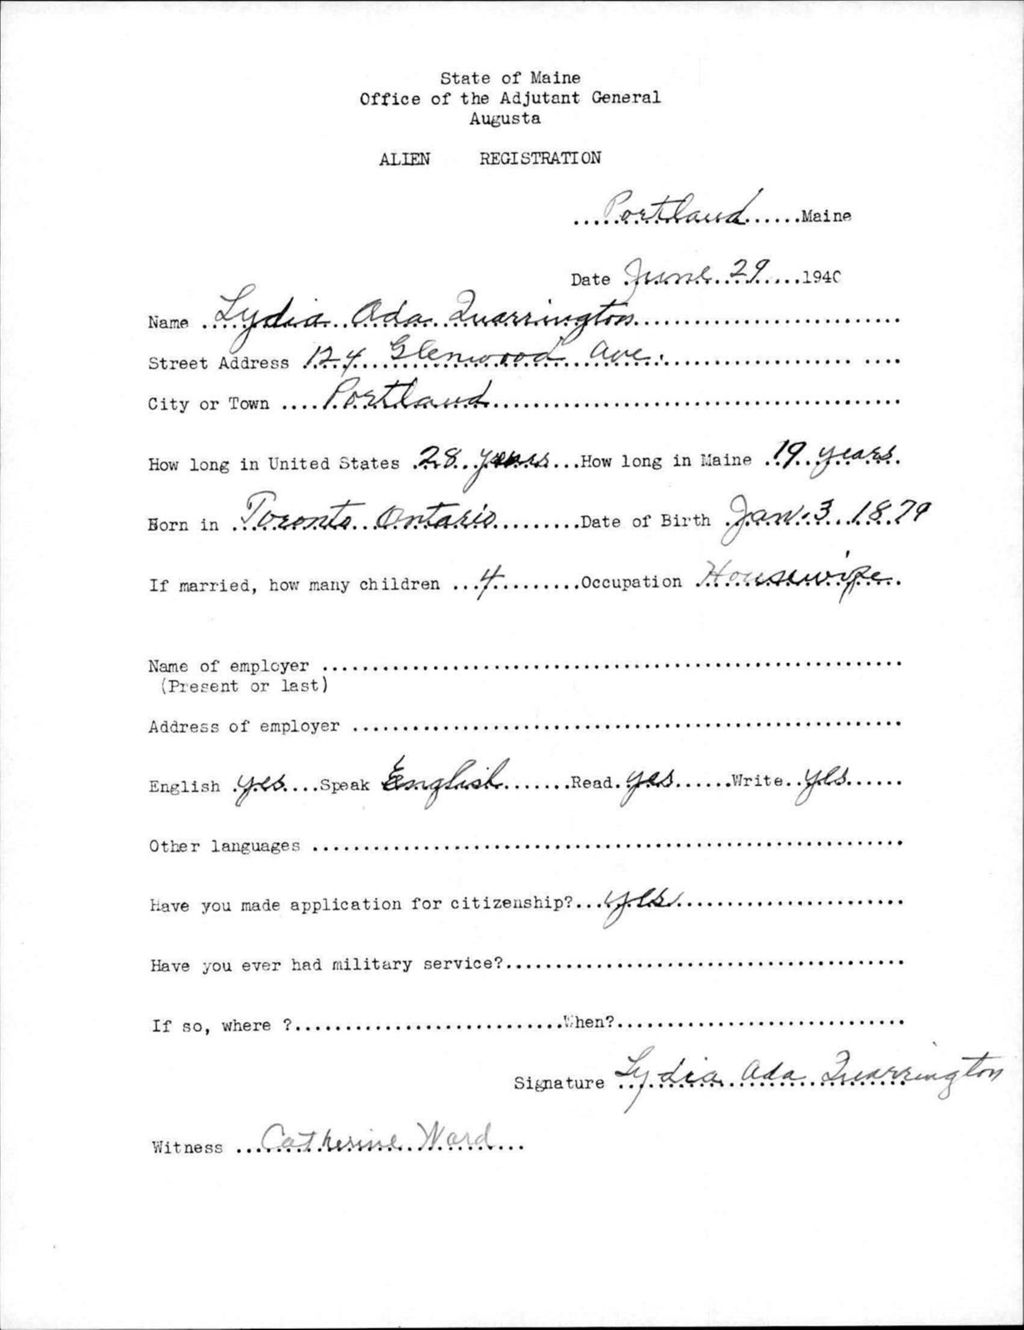 State of Maine
Office of the Adjutant General
Augusta
ALIEN REGISTRATION
Portland Maine
Date June 29 1940
Name Lydia Ada Quarrington
Street Address 124 Glenwood Ave.
City or Town Portland
How long in United States 28 years How long in Maine 19 years
Born in Toronto Ontario Date of Birth Jan. 3 1879
If married, how many children 4 Occupation Housewife
Name of employer
(Present or last)
Address of employer
English yes Speak English Read yes Write yes
Other languages
Have you made application for citizenship? yes
Have you ever had military service?
If so, where ? When?
Signature Lydia Ada Quarrington
Witness Catherine Ward